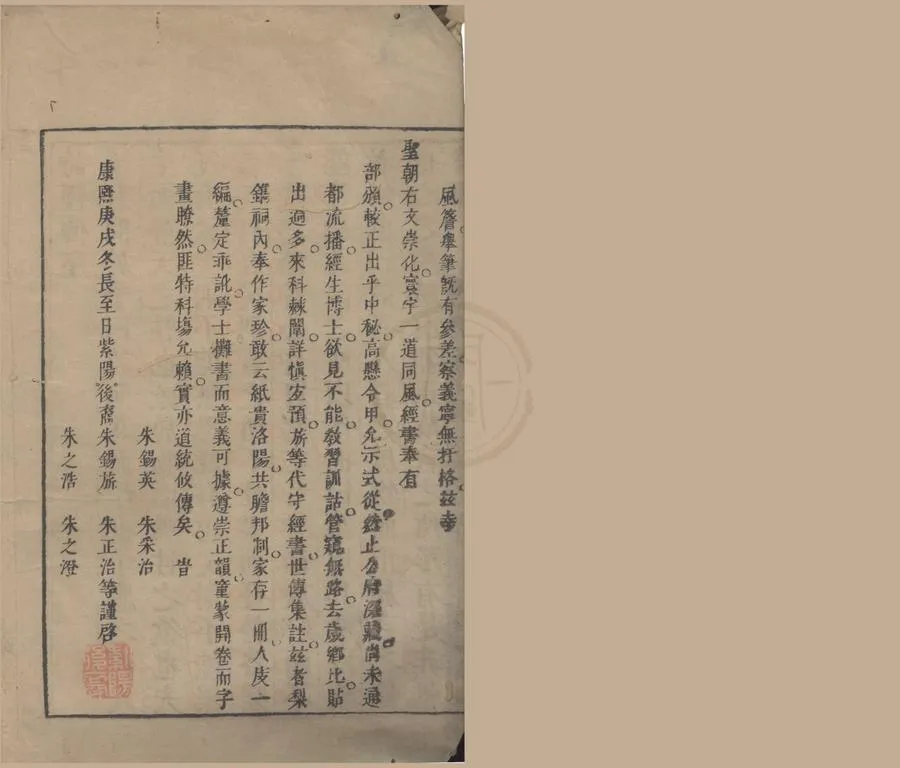 風簷舉筆旣有參差察義寧無扞格兹幸
聖朝右文崇化寰宇一道同風經書奉有
部頒較正出乎中秘高懸令甲允示式從第止公府深藏尚未通
都流播經生博士欲見不能教習訓詁管窺無路去歲鄉比貼
出過多來科棘闈詳愼宜預旅等代守經書世傳集註兹者梨
鐫祠內奉作家珍敢云紙貴洛陽共瞻邦制家存一冊人庋一
編釐定乖訛學士攤書而意義可據遵崇正韻童蒙開卷而字
畫瞭然匪特科塲允賴實亦道統攸傳矣 旹
朱錫英 朱采治
康熈庚戌冬長至日紫陽後裔朱錫旅 朱正治等謹啓
朱之浩 朱之澄